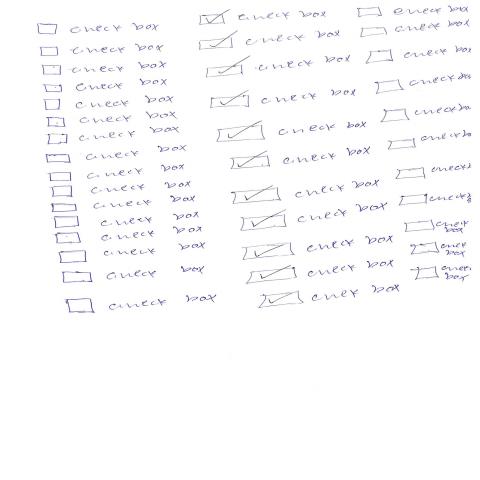 check box
check box
check box
check box
check box
check box
check box
check box
check box
check box
check box
check box
check box
check box
check box
check box
check box
check box
check box
check box
check box
check box
check box
check box
check box
check box
check box
check box
check box
check box
check box
check bo
check
check
check
check
box
check
box
check
box